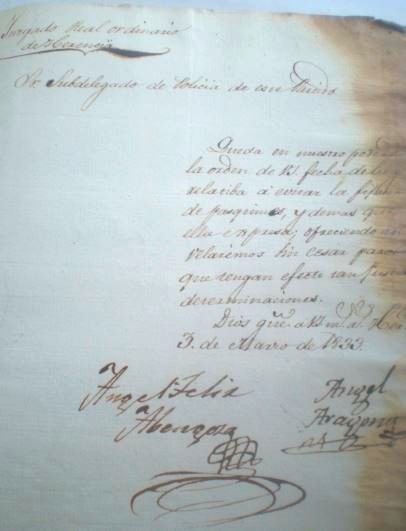 Juzgado Real ordinario
de Herencia
Sr. Subdelegado de Policia de este Partido
Queda en nuestro pod
la orden de V.S. fecha de
relatiba á evitar la
de pasquines, y demas que
ella expresa; ofreciendo
velaremos sin cesar para
que tengan efecto tan
determinaciones.
Dios gũe. a V.S. m. a. He
3. de Marzo de 1833.
Angel Felix
Abengoza
Angel
Aragones